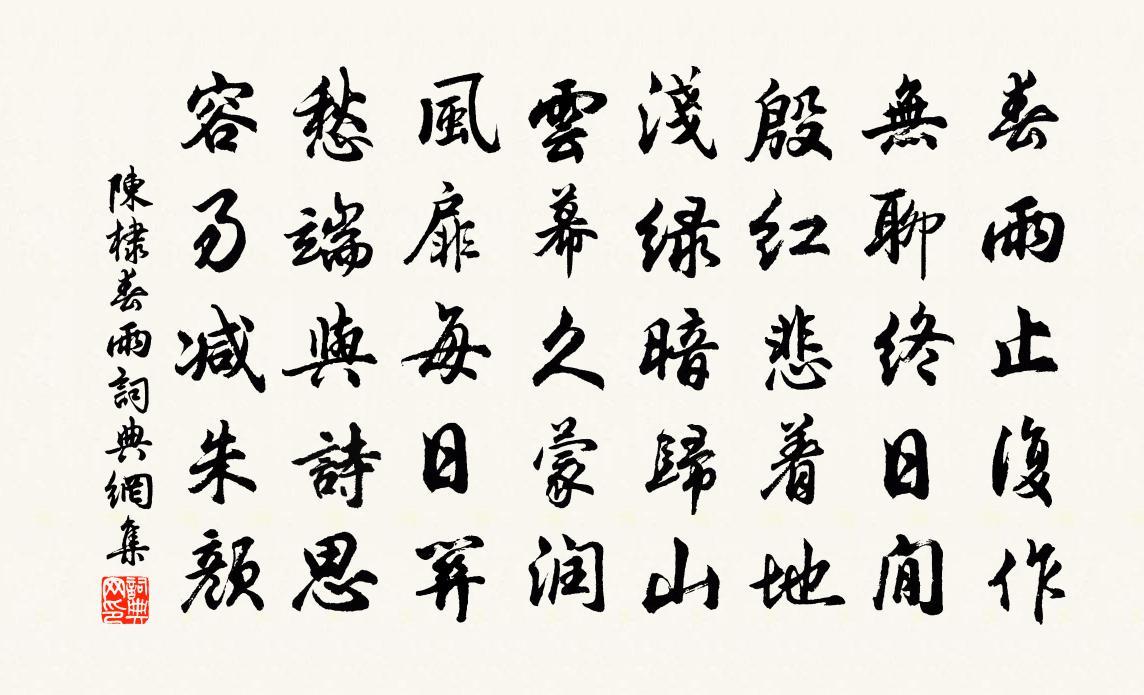 春雨止復作
無聊終日閒
殷紅悲着地
淺緑暗歸山
雲幕久蒙润
風扉每日關
愁端與詩思
容易减朱顔
陳棣春雨詞典網集
詞典网印